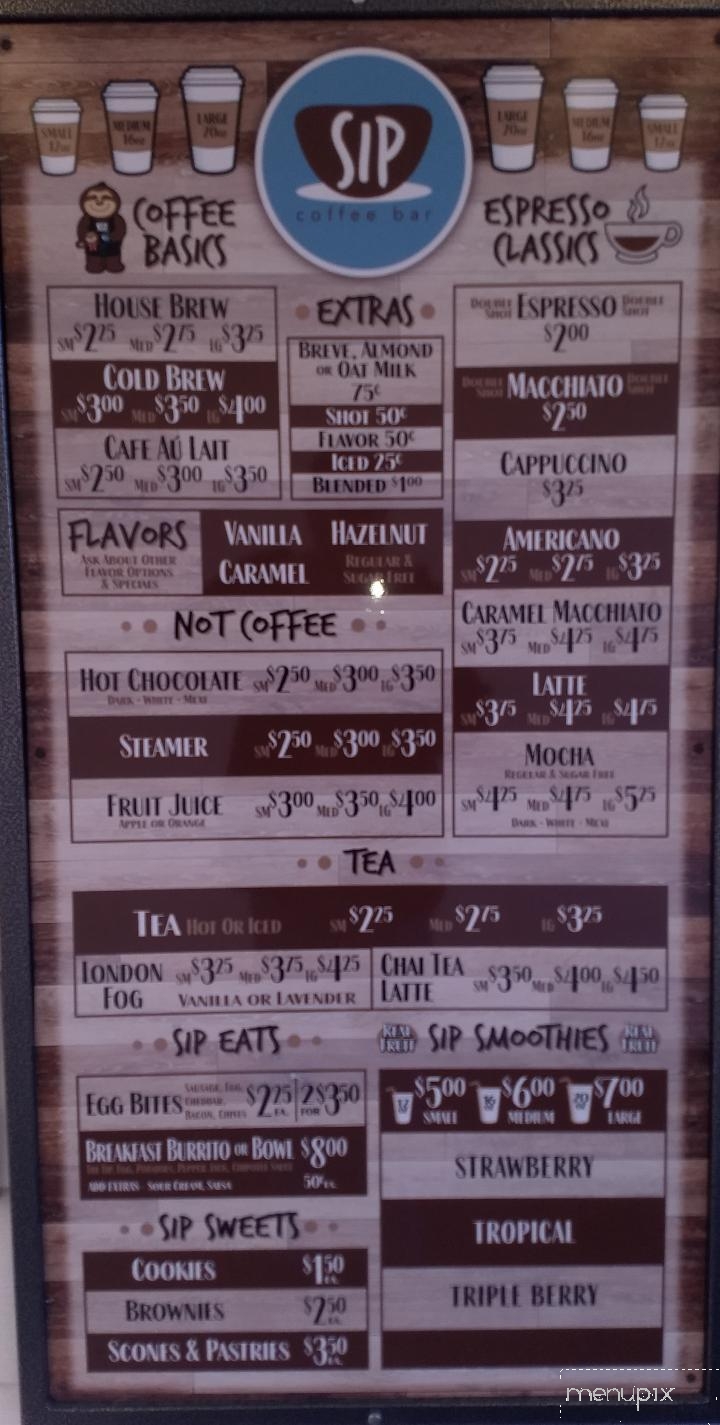 SMALL 12oz
MEDIUM 16oz
LARGE 20oz
SIP
coffee bar
LARGE 20oz
MEDIUM 16oz
SMALL 12oz
COFFEE
BASICS
HOUSE BREW
SM $2.25 MED $2.75 LG $3.25
COLD BREW
SM $3.00 MED $3.50 LG $4.00
CAFE AÚ LAIT
SM $2.50 MED $3.00 LG $3.50
EXTRAS
BREVE, ALMOND
OR OAT MILK
75¢
SHOT 50¢
FLAVOR 50¢
ICED 25¢
BLENDED $1.00
ESPRESSO
CLASSICS
DOUBLE SHOT ESPRESSO DOUBLE SHOT
$2.00
DOUBLE SHOT MACCHIATO DOUBLE SHOT
$2.50
CAPPUCCINO
$3.25
AMERICANO
SM $2.25 MED $2.75 LG $3.25
CARAMEL MACCHIATO
SM $3.75 MED $4.25 LG $4.75
LATTE
SM $3.75 MED $4.25 LG $4.75
MOCHA
REGULAR & SUGAR FREE
SM $4.25 MED $4.75 LG $5.25
DARK - WHITE - MEXI
FLAVORS
ASK ABOUT OTHER
FLAVOR OPTIONS
& SPECIALS
VANILLA HAZELNUT
CARAMEL REGULAR &
SUGAR FREE
NOT COFFEE
HOT CHOCOLATE SM $2.50 MED $3.00 LG $3.50
DARK - WHITE - MEXI
STEAMER SM $2.50 MED $3.00 LG $3.50
FRUIT JUICE SM $3.00 MED $3.50 LG $4.00
APPLE OR ORANGE
TEA
TEA HOT OR ICED SM $2.25 MED $2.75 LG $3.25
LONDON FOG SM $3.25 MED $3.75 LG $4.25
VANILLA OR LAVENDER
CHAI TEA LATTE SM $3.50 MED $4.00 LG $4.50
SIP EATS
EGG BITES SAUSAGE, EGG,
CHEDDAR,
BACON, CHIVES
$2.25 EA. 2 FOR $3.50
BREAKFAST BURRITO OR BOWL $8.00
EGG, POTATOES, PEPPER JACK, CHIPOTLE SAUCE
ADD EXTRAS - SOUR CREAM, SALSA 50¢ EA.
SIP SWEETS
COOKIES $1.50 EA.
BROWNIES $2.50 EA.
SCONES & PASTRIES $3.50 EA.
REAL FRUIT SIP SMOOTHIES REAL FRUIT
12 $5.00 SMALL 16 oz $6.00 MEDIUM 20 oz $7.00 LARGE
STRAWBERRY
TROPICAL
TRIPLE BERRY
menupix